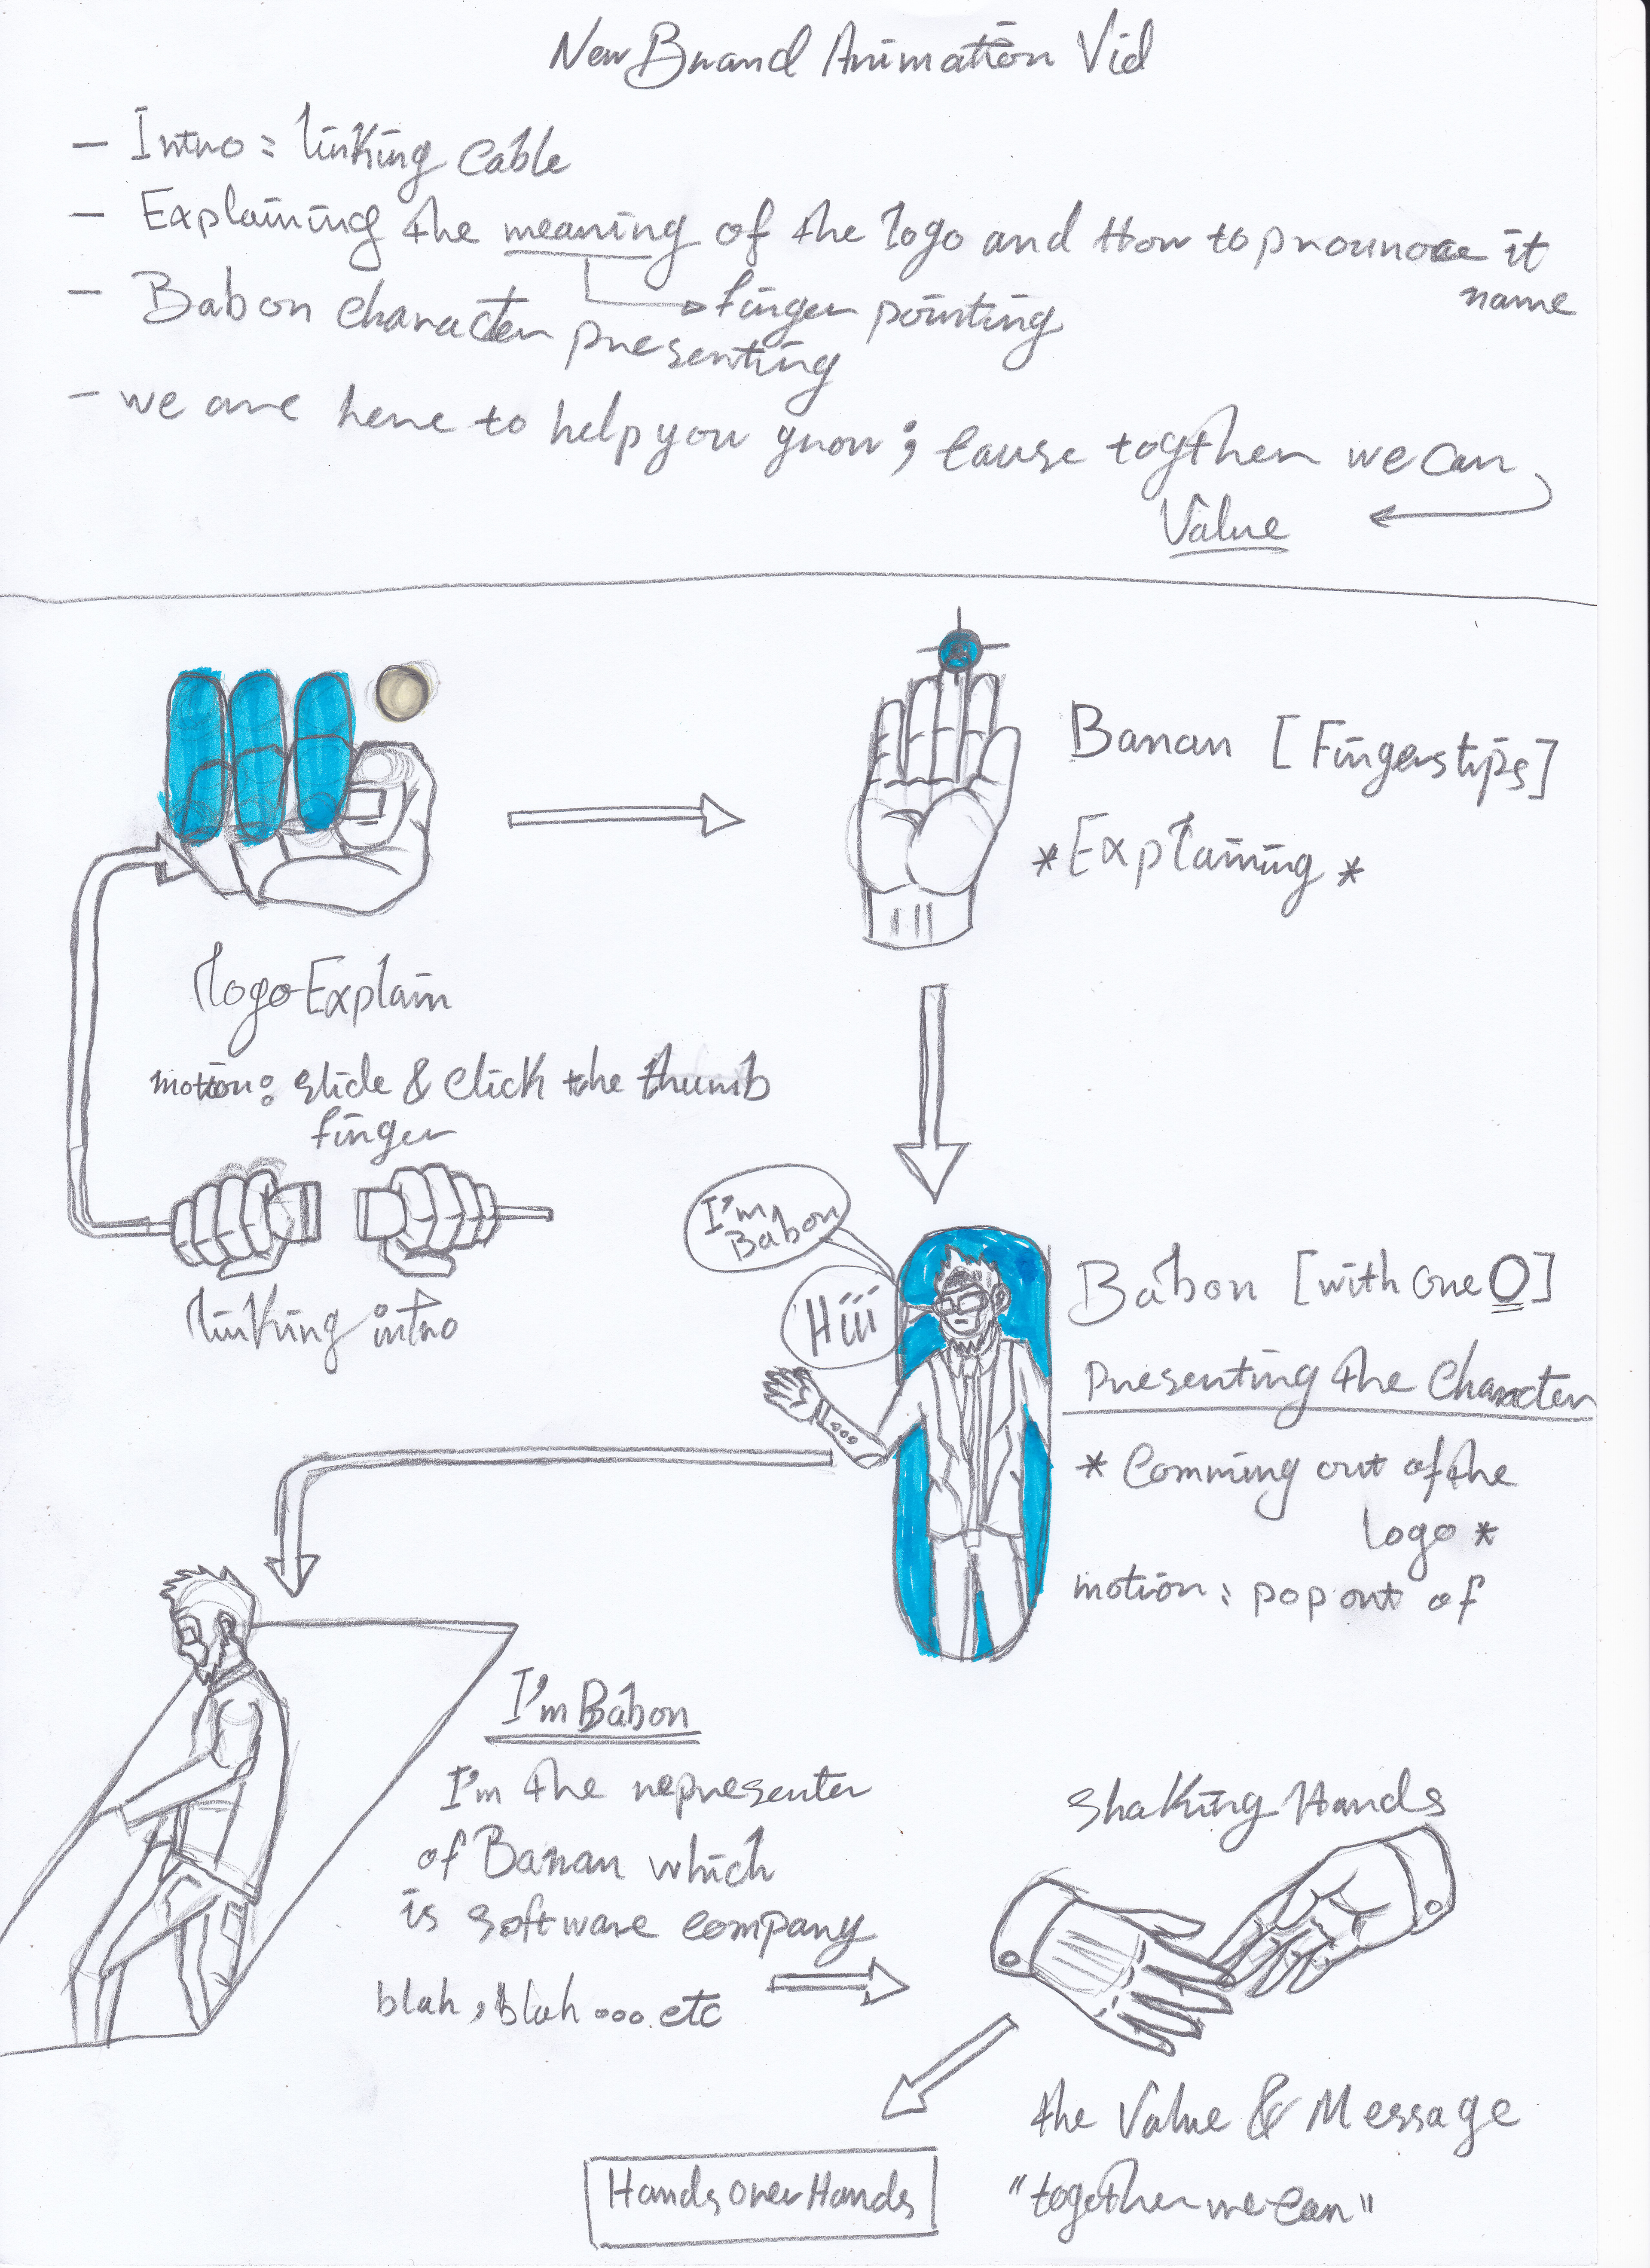 New Brand Animation Vid
- Intro : linking cable
- Explaining the meaning of the logo and How to pronounce it
name
finger pointing
- Babon character presenting
- we are here to help you grow ; cause togther we can
Value
Banan [Fingerstips]
* Explaining *
logo Explain
motion : slide & click the thumb
finger
linking intro
I'm
Babon
Hiii
Babon [with one O]
presenting the character
* Comming out of the
logo *
motion : pop out of
I'm Babon
I'm the representer
of Banan which
is software company
blah , blah .... etc
shaking Hands
the Value & Message
"together we can"
Hands over Hands